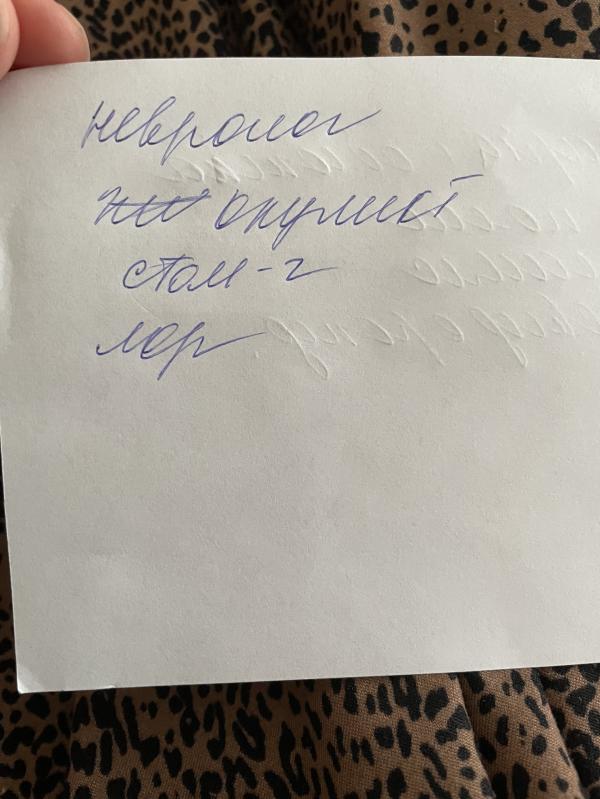 невролог
окулист
стом-г
лор